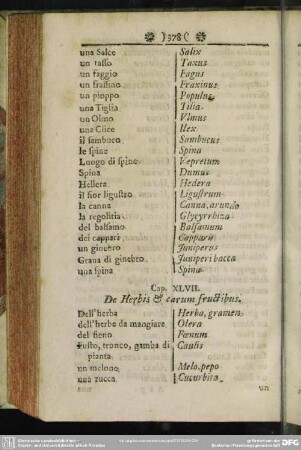 )378(
una Salce Salix
un tasso Taxus
un faggio Fagus
un frassino Fraxinus
un pioppo Populus
una Tiglia Tilia
un Olmo Vlmus
una Elice Ilex
il sambuco Sambucus
le spine Spina
Luogo di spine Vepretum
Spina Dumus
Hellera Hedera
il fior ligustro Ligustrum
la canna Canna, arundo
la regolitia Glycyrrhiza
del balsamo Balsamum
dei cappari Capparis
un ginebro Juniperus
Grana di ginebro Juniperi bacca
una spina Spina
Cap. XLVII.
De Herbis & earum fructibus.
Dell'herba Herba, gramen
dell'herbe da mangiare Olera
del fieno Fœnum
Fusto, tronco, gamba di Caulis
pianta
un melone Melo, pepo
una zucca Cucurbita
un